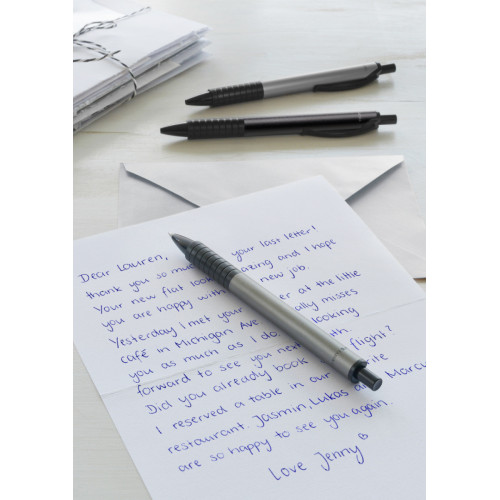 Dear Lauren,
thank you so mu your last letter!
Your new flat loo azing and I hope
you are happy with new job.
Yesterday I met your er at the little
café in Michigan Ave ally misses
you as much as I do looking
forward to see you nex with
Did you already book flight?
I reserved a table in our rite
restaurant. Jasmin, Lukas Marcu
are so happy to see you again.
Love Jenny